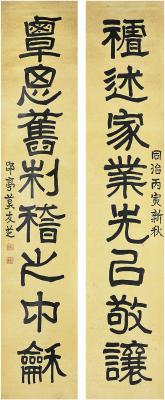 同治丙寅新秋
祖述家業先己敬讓
覃思舊制稽之中龢
郘亭莫友芝